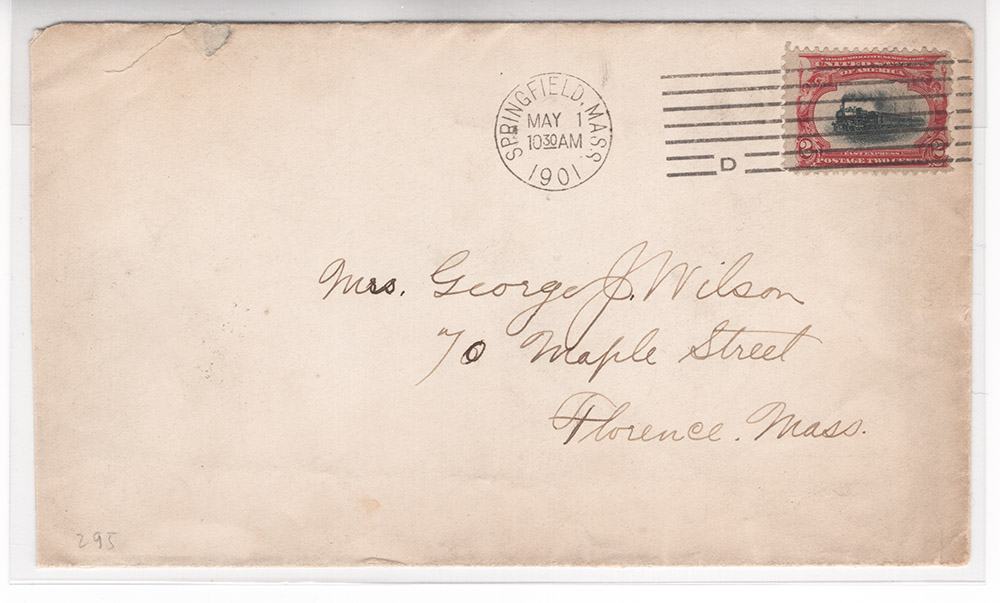 SPRINGFIELD, MASS.
MAY 1
10 30 AM
1901
D
UNITED STATES
OF AMERICA
FAST EXPRESS
2 POSTAGE TWO CENTS 2
Mrs. George J. Wilson
70 Maple Street
Florence. Mass.
295